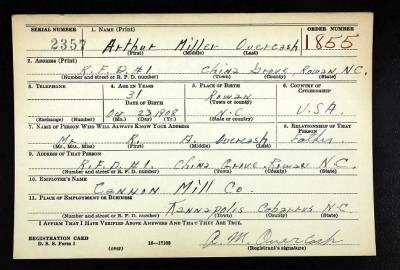 SERIAL NUMBER 1. NAME (Print) ORDER NUMBER
2357 Arthur Miller Overcash 1855
(First) (Middle) (Last)
2. ADDRESS (Print)
R.F.D.#1. China Grove, Rowan, N.C.
(Number and street or R. F. D. number) (Town) (County) (State)
3. TELEPHONE 4. AGE IN YEARS 5. PLACE OF BIRTH 6. COUNTRY OF CITIZENSHIP
31 Rowan
DATE OF BIRTH (Town or county)
Oct 23 1908 N.C. U.S.A.
(Exchange) (Number) (Mo.) (Day) (Yr.) (State or country)
7. NAME OF PERSON WHO WILL ALWAYS KNOW YOUR ADDRESS 8. RELATIONSHIP OF THAT PERSON
Mr. R. A. Overcash Father
(Mr., Mrs., Miss) (First) (Middle) (Last)
9. ADDRESS OF THAT PERSON
R.F.D.#1. China Grove Rowan N.C.
(Number and street or R. F. D. number) (Town) (County) (State)
10. EMPLOYER'S NAME
Cannon Mill Co.
11. PLACE OF EMPLOYMENT OR BUSINESS
Kannapolis Cabarrus N.C.
(Number and street or R. F. D. number) (Town) (County) (State)
I AFFIRM THAT I HAVE VERIFIED ABOVE ANSWERS AND THAT THEY ARE TRUE.
REGISTRATION CARD
D. S. S. Form 1 (over) 16—17105 A. M. Overcash
(Registrant's signature)